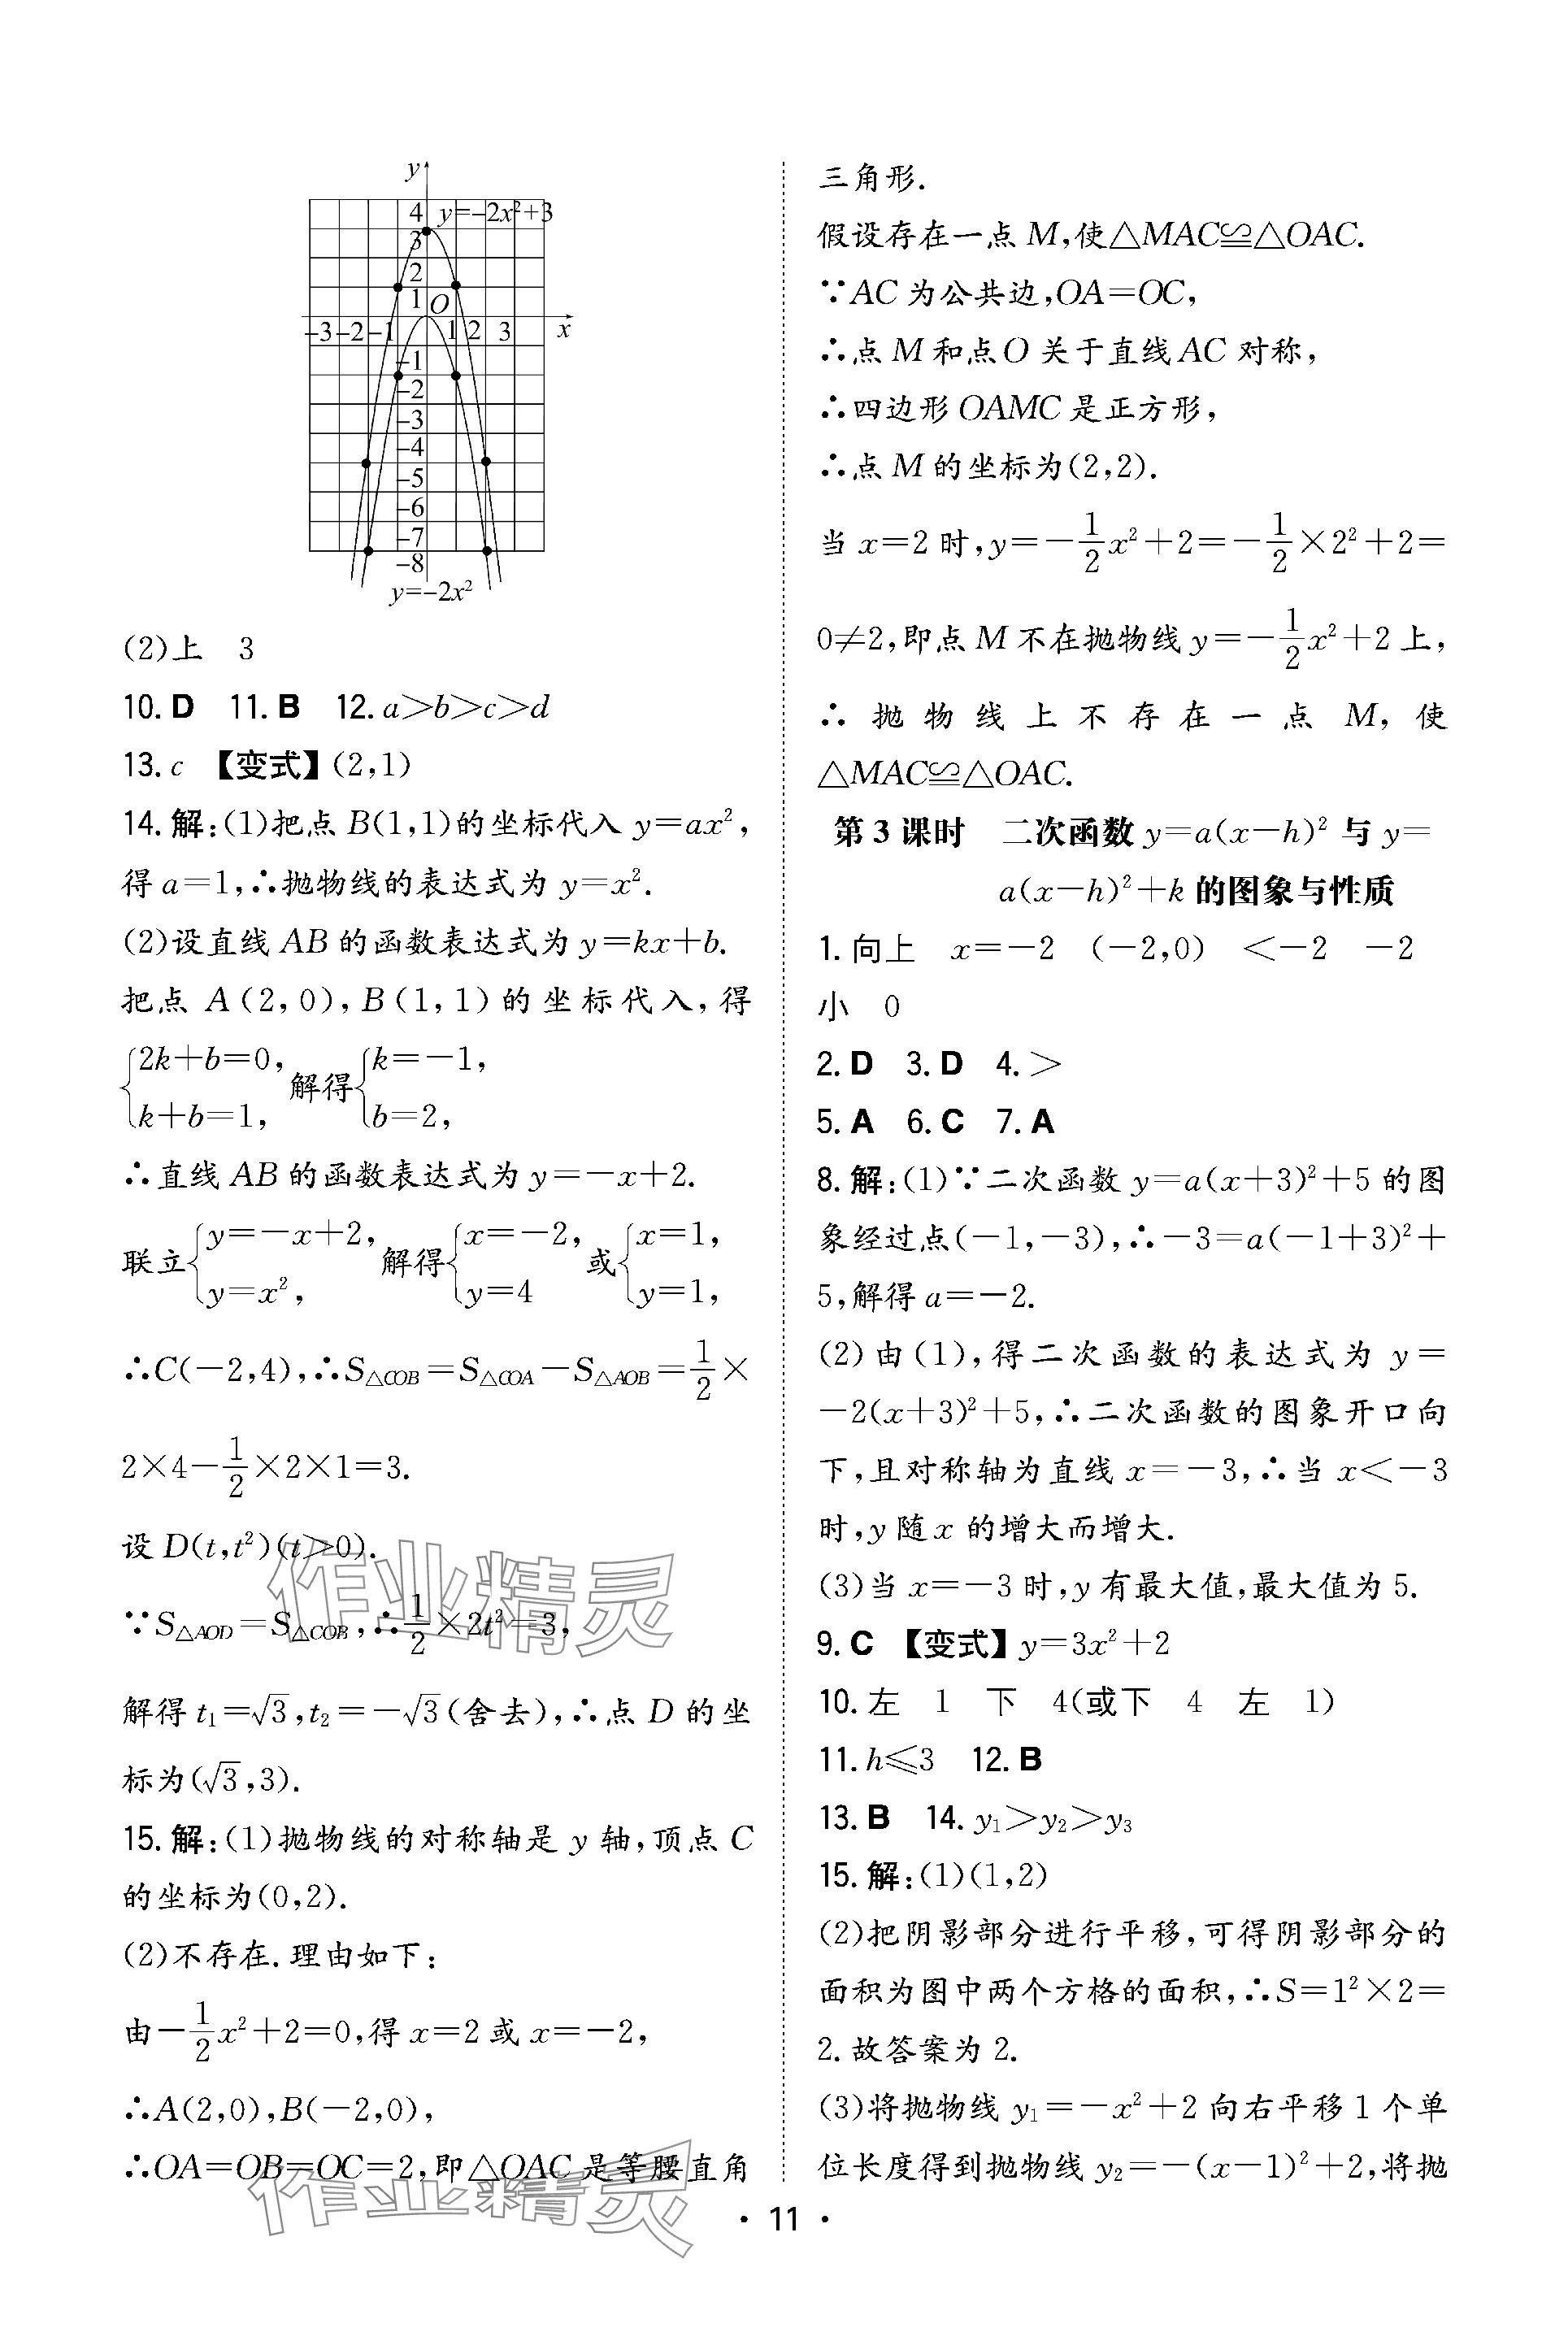 y
4 y=-2x²+3
3
2
1 O
-3 -2 -1 1 2 3 x
-1
-2
-3
-4
-5
-6
-7
-8
y=-2x²
(2)上 3
10. D 11. B 12. a>b>c>d
13. c 【变式】(2,1)
14. 解:(1)把点 B(1,1)的坐标代入 y=ax²,
得 a=1,∴抛物线的表达式为 y=x².
(2)设直线 AB 的函数表达式为 y=kx+b.
把点 A(2,0),B(1,1)的坐标代入,得
{2k+b=0, k+b=1, 解得{k=-1, b=2,
∴直线 AB 的函数表达式为 y=-x+2.
联立{y=-x+2, y=x², 解得{x=-2, y=4 或{x=1, y=1,
∴C(-2,4),∴S△COB=S△COA-S△AOB=1/2×
2×4-1/2×2×1=3.
设 D(t,t²)(t>0).
∵S△AOD=S△COB,∴1/2×2t²=3,
解得 t₁=√3,t₂=-√3(舍去),∴点 D 的坐
标为(√3,3).
15. 解:(1)抛物线的对称轴是 y 轴,顶点 C
的坐标为(0,2).
(2)不存在.理由如下:
由-1/2x²+2=0,得 x=2 或 x=-2,
∴A(2,0),B(-2,0),
∴OA=OB=OC=2,即△OAC 是等腰直角
三角形.
假设存在一点 M,使△MAC≌△OAC.
∵AC 为公共边,OA=OC,
∴点 M 和点 O 关于直线 AC 对称,
∴四边形 OAMC 是正方形,
∴点 M 的坐标为(2,2).
当 x=2 时,y=-1/2x²+2=-1/2×2²+2=
0≠2,即点 M 不在抛物线 y=-1/2x²+2 上,
∴抛物线上不存在一点 M,使
△MAC≌△OAC.
第 3 课时 二次函数 y=a(x-h)² 与 y=
a(x-h)²+k 的图象与性质
1. 向上 x=-2 (-2,0) <-2 -2
小 0
2. D 3. D 4. >
5. A 6. C 7. A
8. 解:(1)∵二次函数 y=a(x+3)²+5 的图
象经过点(-1,-3),∴-3=a(-1+3)²+
5,解得 a=-2.
(2)由(1),得二次函数的表达式为 y=
-2(x+3)²+5,∴二次函数的图象开口向
下,且对称轴为直线 x=-3,∴当 x<-3
时,y 随 x 的增大而增大.
(3)当 x=-3 时,y 有最大值,最大值为 5.
9. C 【变式】y=3x²+2
10. 左 1 下 4(或下 4 左 1)
11. h≤3 12. B
13. B 14. y₁>y₂>y₃
15. 解:(1)(1,2)
(2)把阴影部分进行平移,可得阴影部分的
面积为图中两个方格的面积,∴S=1²×2=
2.故答案为 2.
(3)将抛物线 y₁=-x²+2 向右平移 1 个单
位长度得到抛物线 y₂=-(x-1)²+2,将抛
作业精灵
作业精灵
· 11 ·